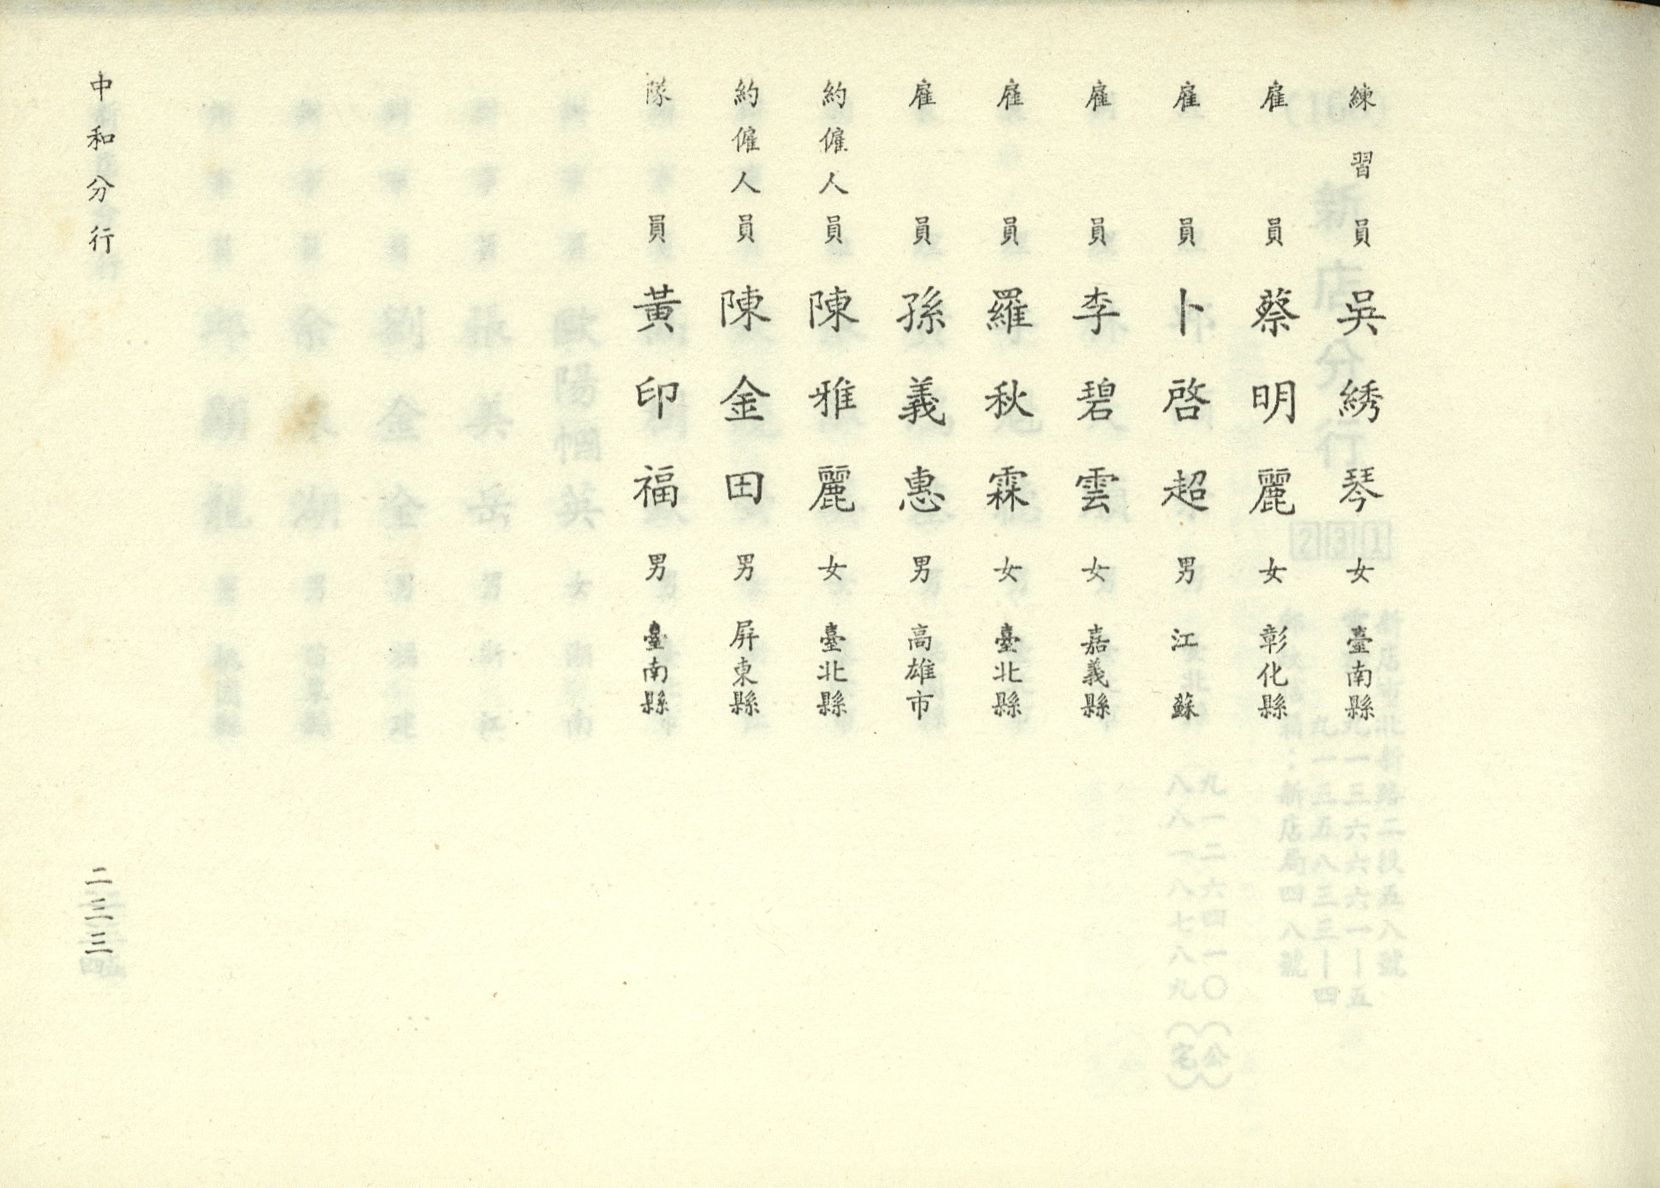 練習員 吳綉琴 女 臺南縣
雇員 蔡明麗 女 彰化縣
雇員 卜啓超 男 江蘇
雇員 李碧雲 女 嘉義縣
雇員 羅秋霖 女 臺北縣
雇員 孫義惠 男 高雄市
約僱人員 陳雅麗 女 臺北縣
約僱人員 陳金田 男 屏東縣
隊員 黃印福 男 臺南縣
中和分行
二三三